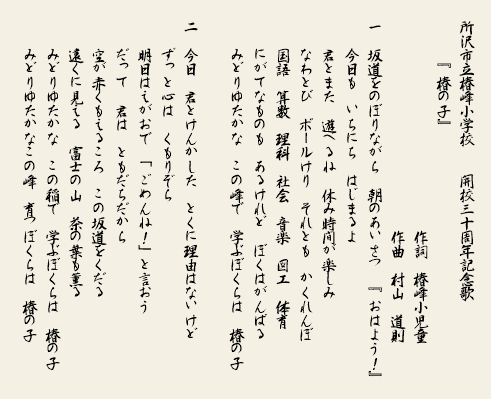 所沢市立椿峰小学校　開校三十周年記念歌
『椿の子』
作詞　椿峰小児童
作曲　村山　道則
一　坂道をのぼりながら　朝のあいさつ　『おはよう！』
今日も　いちにち　はじまるよ
君とまた　遊べるね　休み時間が楽しみ
なわとび　ボールけり　それとも　かくれんぼ
国語　算数　理科　社会　音楽　図工　体育
にがてなものも　あるけれど　ぼくはがんばる
みどりゆたかな　この峰で　学ぶぼくらは　椿の子
二　今日　君とけんかした　とくに理由はないけど
ずっと心は　くもりぞら
明日はえがおで　「ごめんね！」と言おう
だって　君は　ともだちだから
空が赤くもえるころ　この坂道をくだる
遠くに見える　富士の山　茶の葉も薫る
みどりゆたかな　この稲で　学ぶぼくらは　椿の子
みどりゆたかなこの峰　育つぼくらは　椿の子